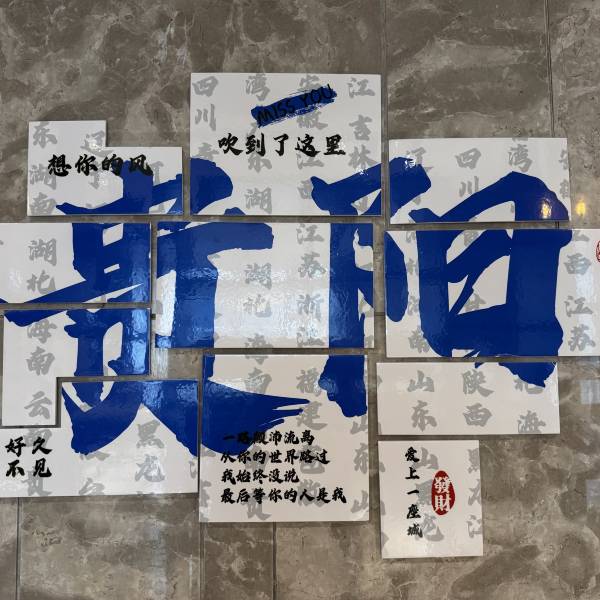 MISS YOU
想你的风
吹到了这里
贵阳
好久
不见
一路颠沛流离
从你的世界路过
我始终没说
最后等你的人是我
爱上一座城
發財
四川
湾
安徽
江
吉林
东
湖南
四川
湾
湖北
海南
云
湖北
海南
江苏
浙江
福建
西
江苏
山东
陕西
海
黑龙
山东
黑龙江